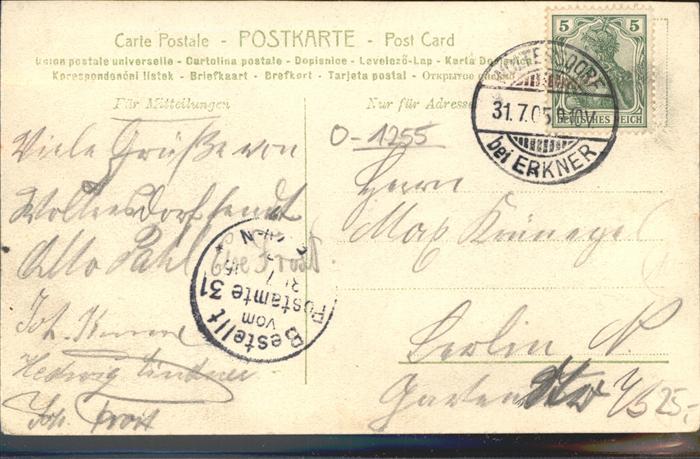 Carte Postale - POSTKARTE - Post Card
Union postale universelle - Cartolina postale - Dopisnice - Levelező-Lap - Karta
Korespondenční lístek - Briefkaart - Brefkort - Tarjeta postal - Открытое
Für Mitteilungen
Nur für Adresse
5 5
DEUTSCHES REICH
31.7.05
bei ERKNER
0-1255
Viele Grüße von
Woltersdorf sendt
Otto Pahl Eve Frost.
Joh.
Hedwig Lindner
Joh. Frost
Bestellt
vom
Postamte 31
31 7
Herrn
Max
Berlin N
Garten
25.-